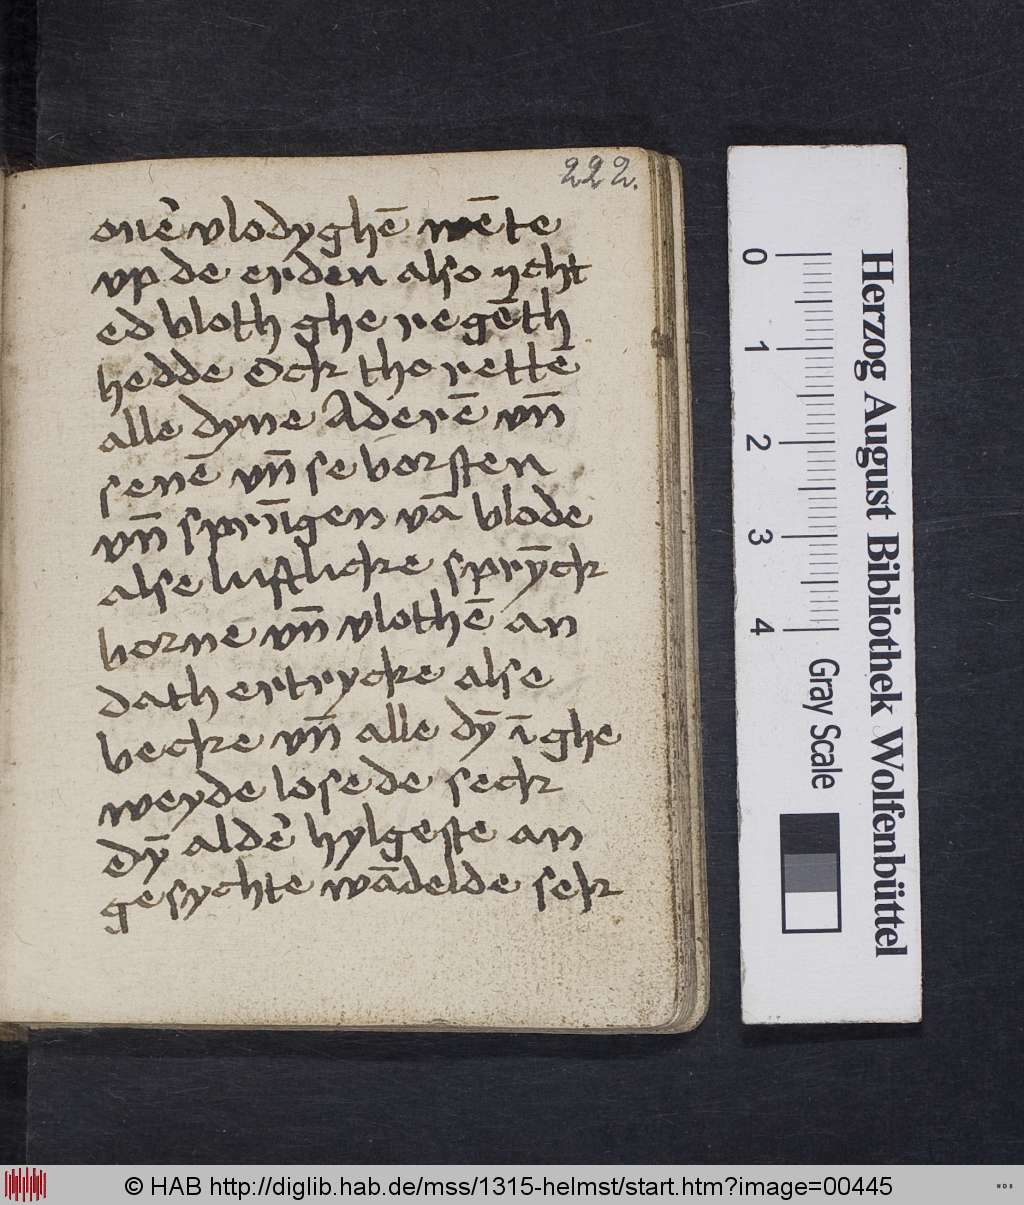 222.
oue͛ vlodyghē wēte
vp de erden also ycht
ed bloth ghe regēth
hedde Ock tho rettē
alle dyne Aderē vn̄
senē vn̄ se borsten
vn̄ sprūgen vā blode
alse lustlicke sprȳck
borne vn̄ vlothē an
dath ertrycke alse
becke vn̄ alle dȳ īghe
weyde losede seck
dȳ alde͛ hylgeste an
gesychte wādelde sek
0
1
2
3
4
Gray Scale
Herzog August Bibliothek Wolfenbüttel
© HAB http://diglib.hab.de/mss/1315-helmst/start.htm?image=00445